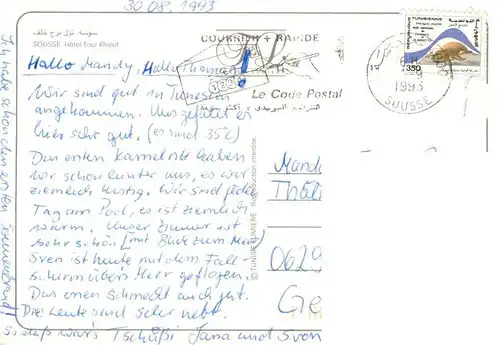 30.08.1993
سوسة - نزل برج خلف
SOUSSE Hôtel Tour Khalef
COURRIER + RAPIDE
Le Code Postal
الترقيم البريدي = أكثر سرعة
TUNISIENNE
350
6H
1993
SOUSSE
Hallo Mandy, Hallo Thomas!
Wir sind gut in Tunesien
angekommen. Uns gefällt es
hier sehr gut. (es sind 35°C)
Den ersten Kamelritt haben
wir schon hinter uns, es war
ziemlich lustig. Wir sind jeden
Tag am Pool, es ist ziemlich
warm. Unser Zimmer ist
sehr schön (mit Blick zum Meer)
Sven ist heute mit dem Fall-
schirm übers Meer geflogen.
Das Essen schmeckt auch gut.
Die Leute sind sehr nett.
So das war's Tschüßi Jana und Sven
Ich habe schon den ersten Sonnenbrand!
© TUNISIE LUMIERE Reproduction interdite
Mand
Thäl
0629
Ge